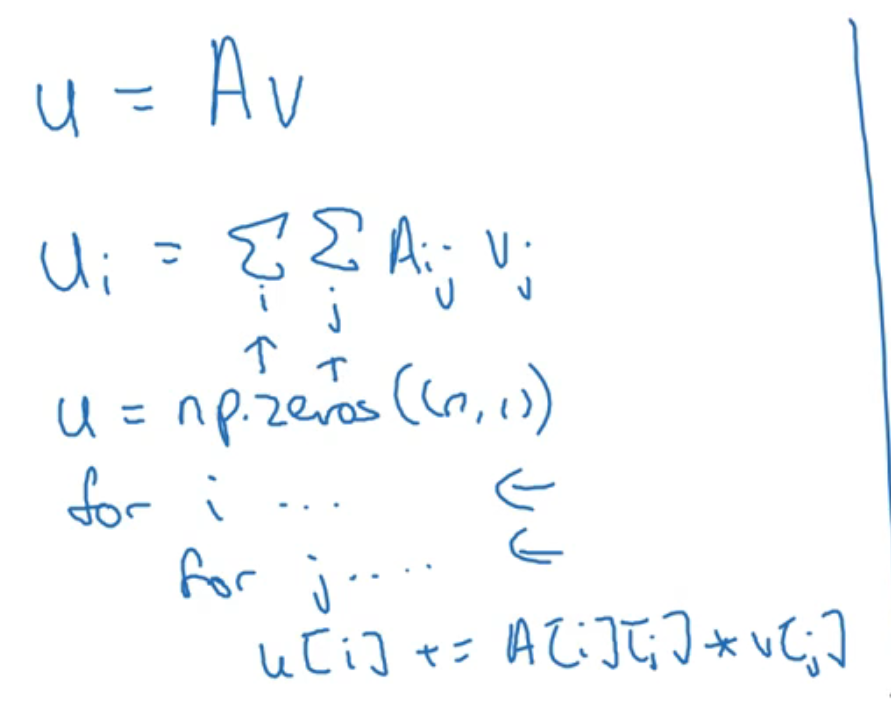 u = Av
u_i = Σ_i Σ_j A_ij v_j
↑ ↑
u = np.zeros((n,1))
for i ... ←
for j .... ←
u[i] += A[i][j] * v[j]